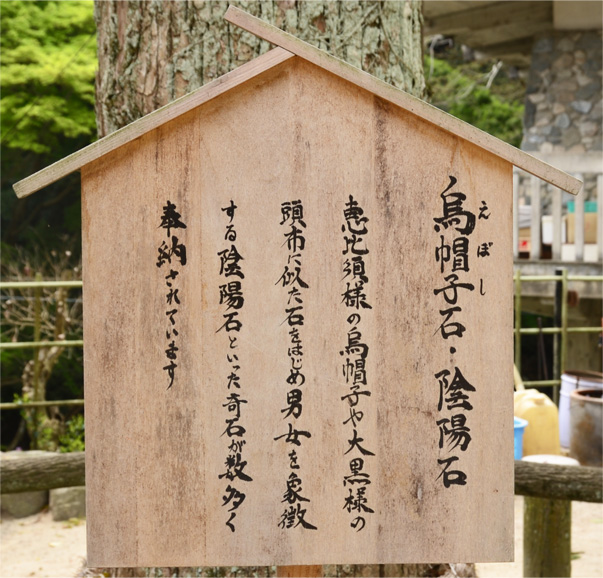 烏帽子石・陰陽石
えぼし
恵比須様の烏帽子や大黒様の
頭布に似た石をはじめ男女を象徴
する陰陽石といった奇石が数多く
奉納されています